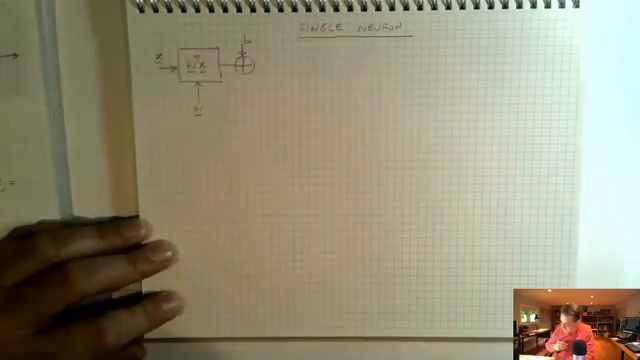 SINGLE NEURON
b
x
w^T x
w